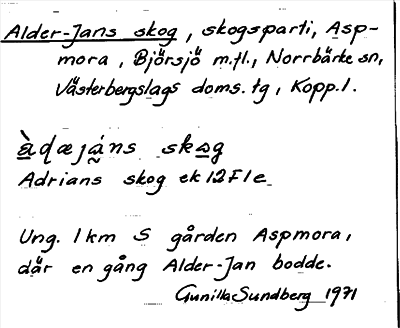 Alder-Jans skog, skogsparti, Asp-
mora, Björsjö m.fl., Norrbärke sn,
Västerbergslags doms. tg, Kopp.l.
Adrians skog ek 12 F1e
Ung. 1 km S gården Aspmora,
där en gång Alder-Jan bodde.
Gunilla Sundberg 1971